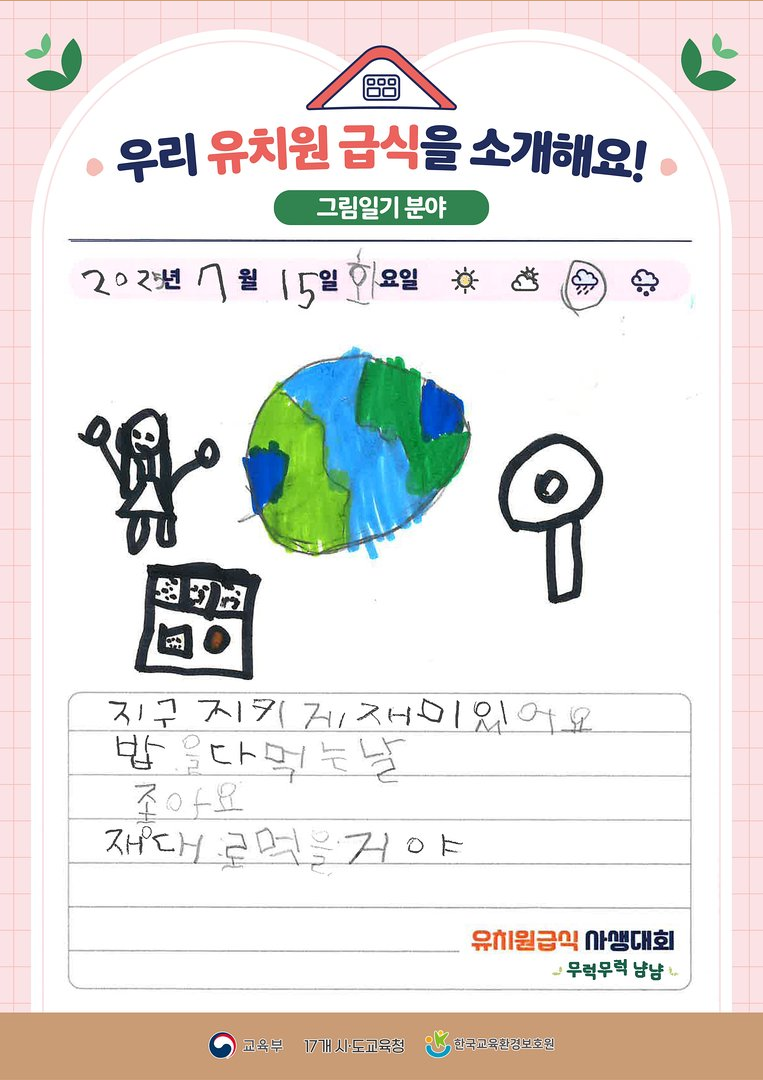 우리 유치원 급식을 소개해요!
그림일기 분야
2025년 7월 15일 화요일
지구 지키 게 재미있어요
밥을다먹는날
좋아요
쟁대로먹을거야
유치원급식 사생대회
무럭무럭 냠냠
교육부 17개 시·도교육청 한국교육환경보호원